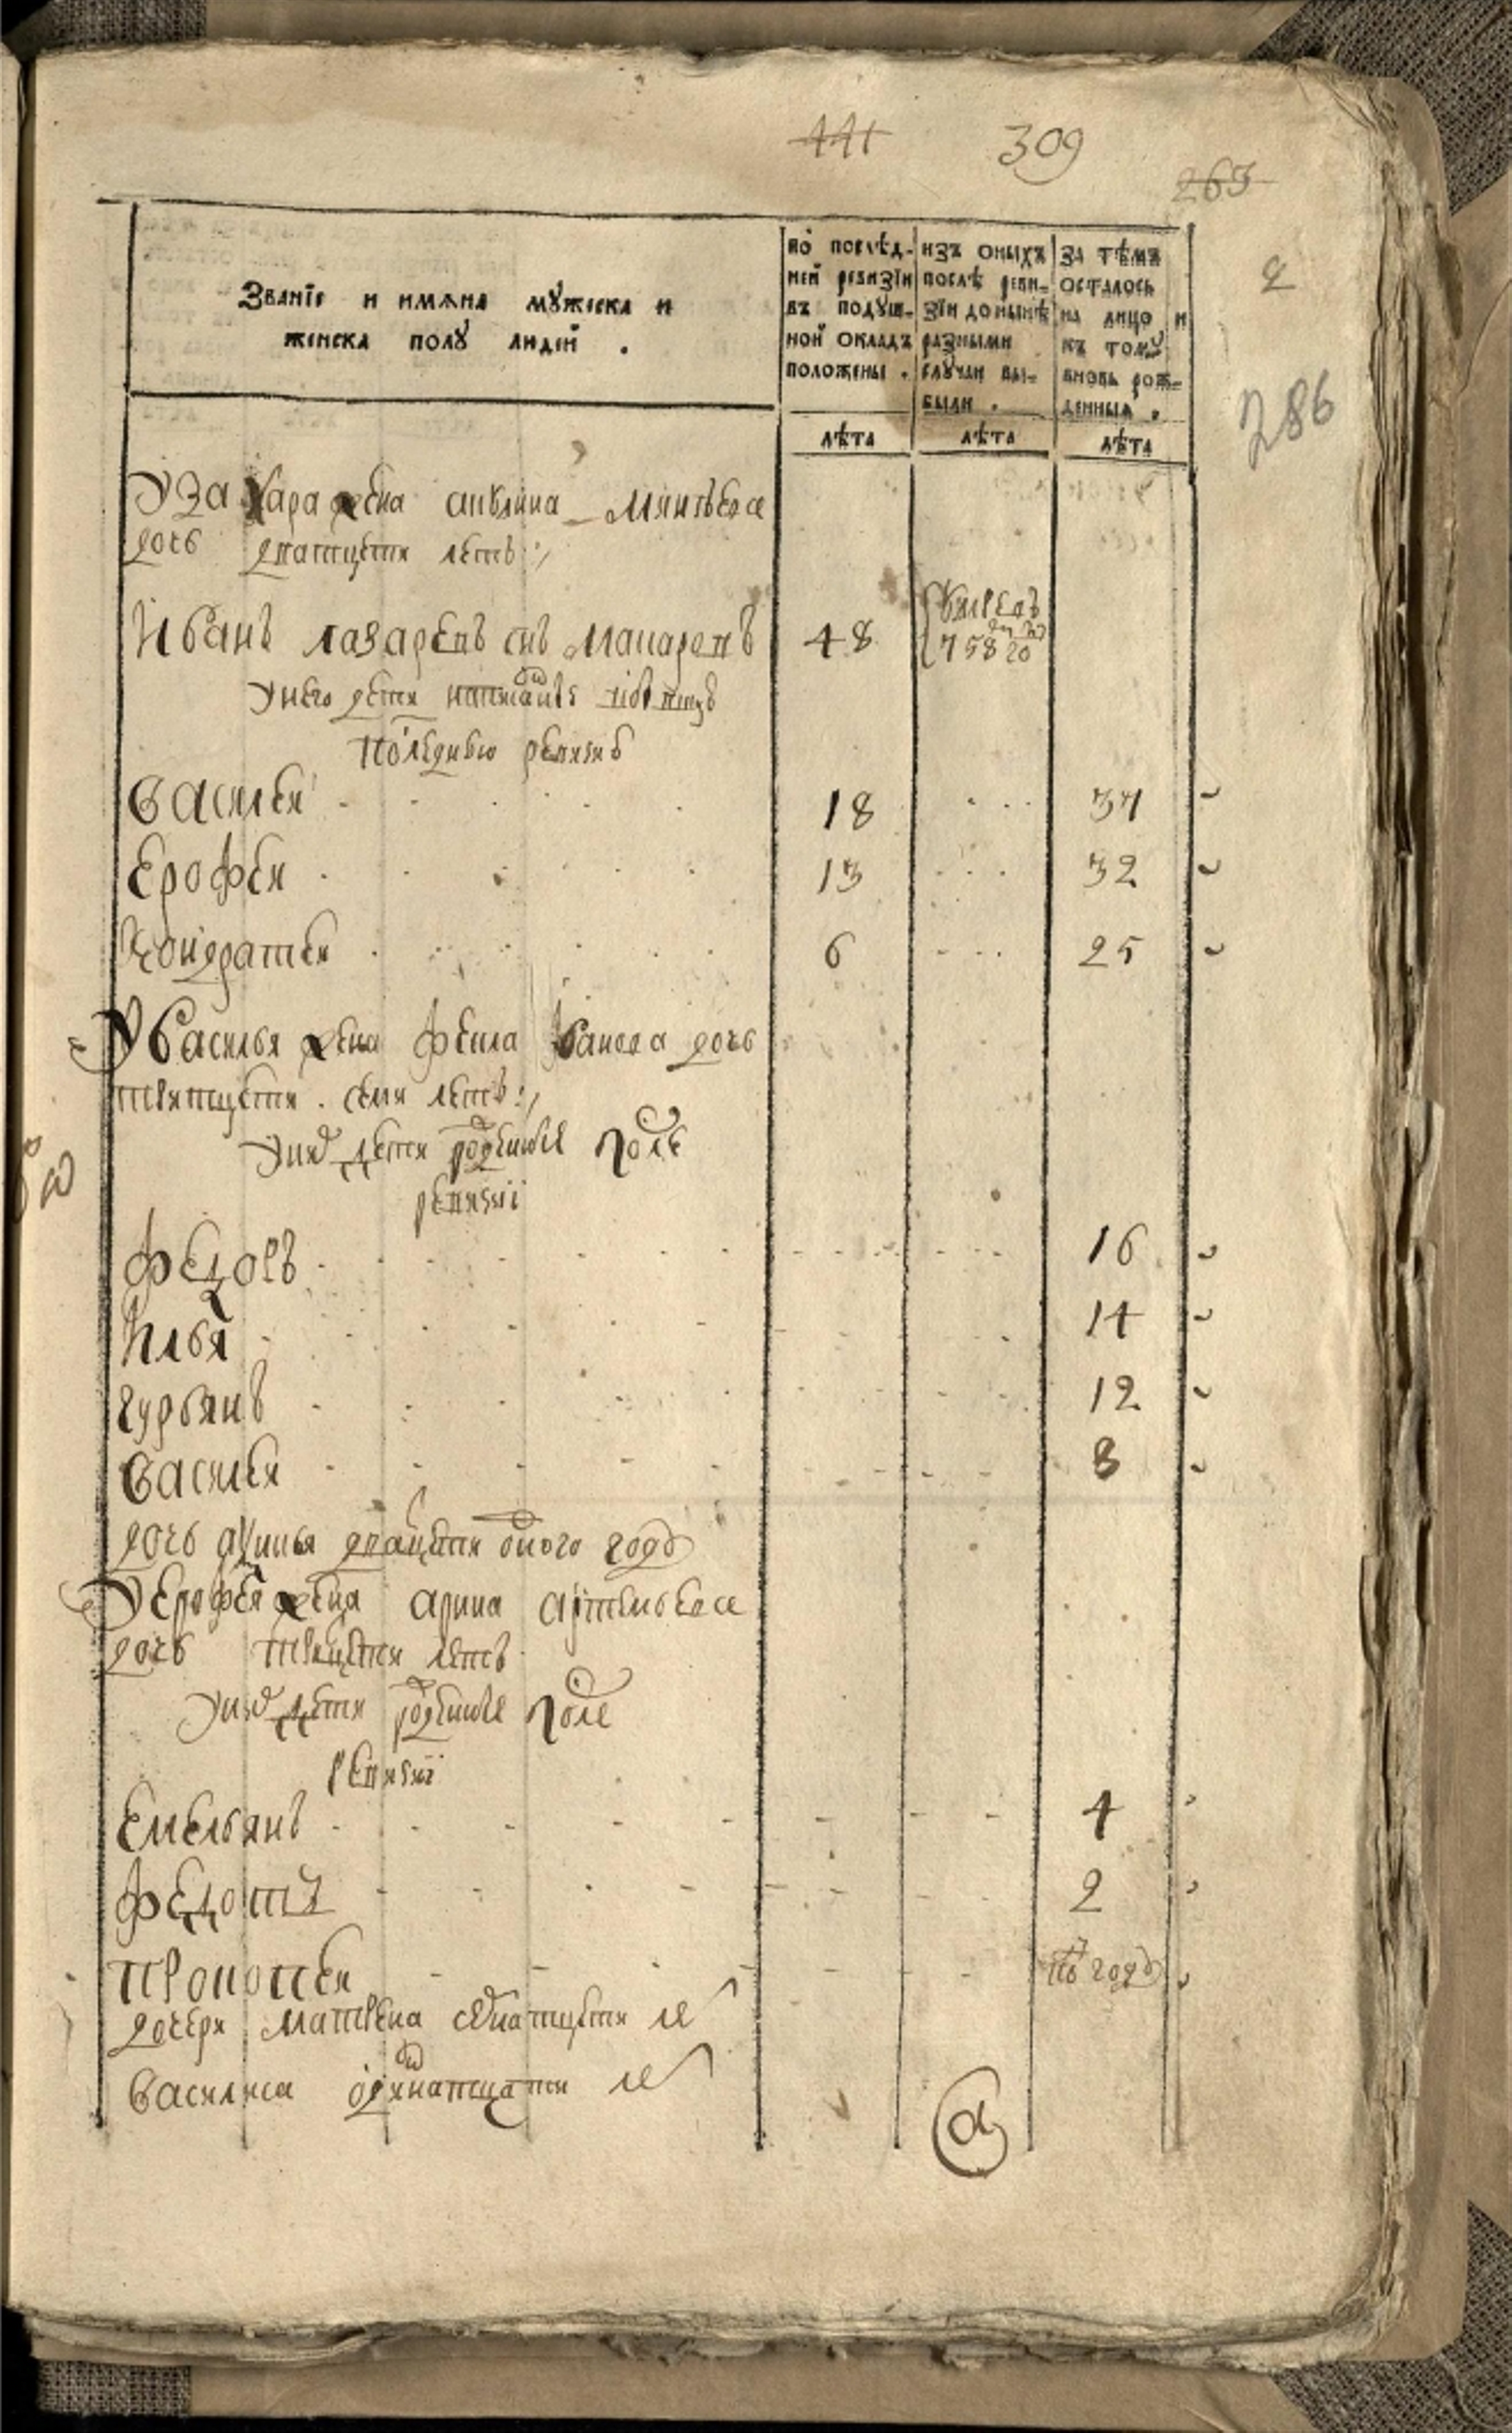 441 309
265
2
286
Званїе и имѧна мꙋжеска и
женска полꙋ людей .
по послѣд-
ней ревизїи
въ подуш-
ной окладъ
положены .
изъ оныхъ
послѣ реви-
зїи до нынѣ
разными
случаи вы-
были .
за тѣмъ
осталось
на лицо и
къ томꙋ
вновь рож-
денныѧ .
лѣта лѣта лѣта
У Захара жена
дочь дватцети летъ
Иванъ лазаревъ снъ макаровъ 48 умревъ 758 го
У него дети написаныя
последнюю ревизию
Василеи 18 37
Ерофеи 13 32
Кондратеи 6 25
У Василья жена Фекла Иванова дочь
тритцети семи летъ
У них дети рожденные после
ревизїи
Федоръ 16
Илья 14
Гурьянъ 12
Василеи 8
дочь дватцети одного году
У Ерофея жена Арина Артемьева
дочь трицети летъ
У них дети рожденные после
ревизїи
Емельянъ 4
Федотъ 2
Прокопеи году
дочери Матрена ле
Василиса одинатцати ле